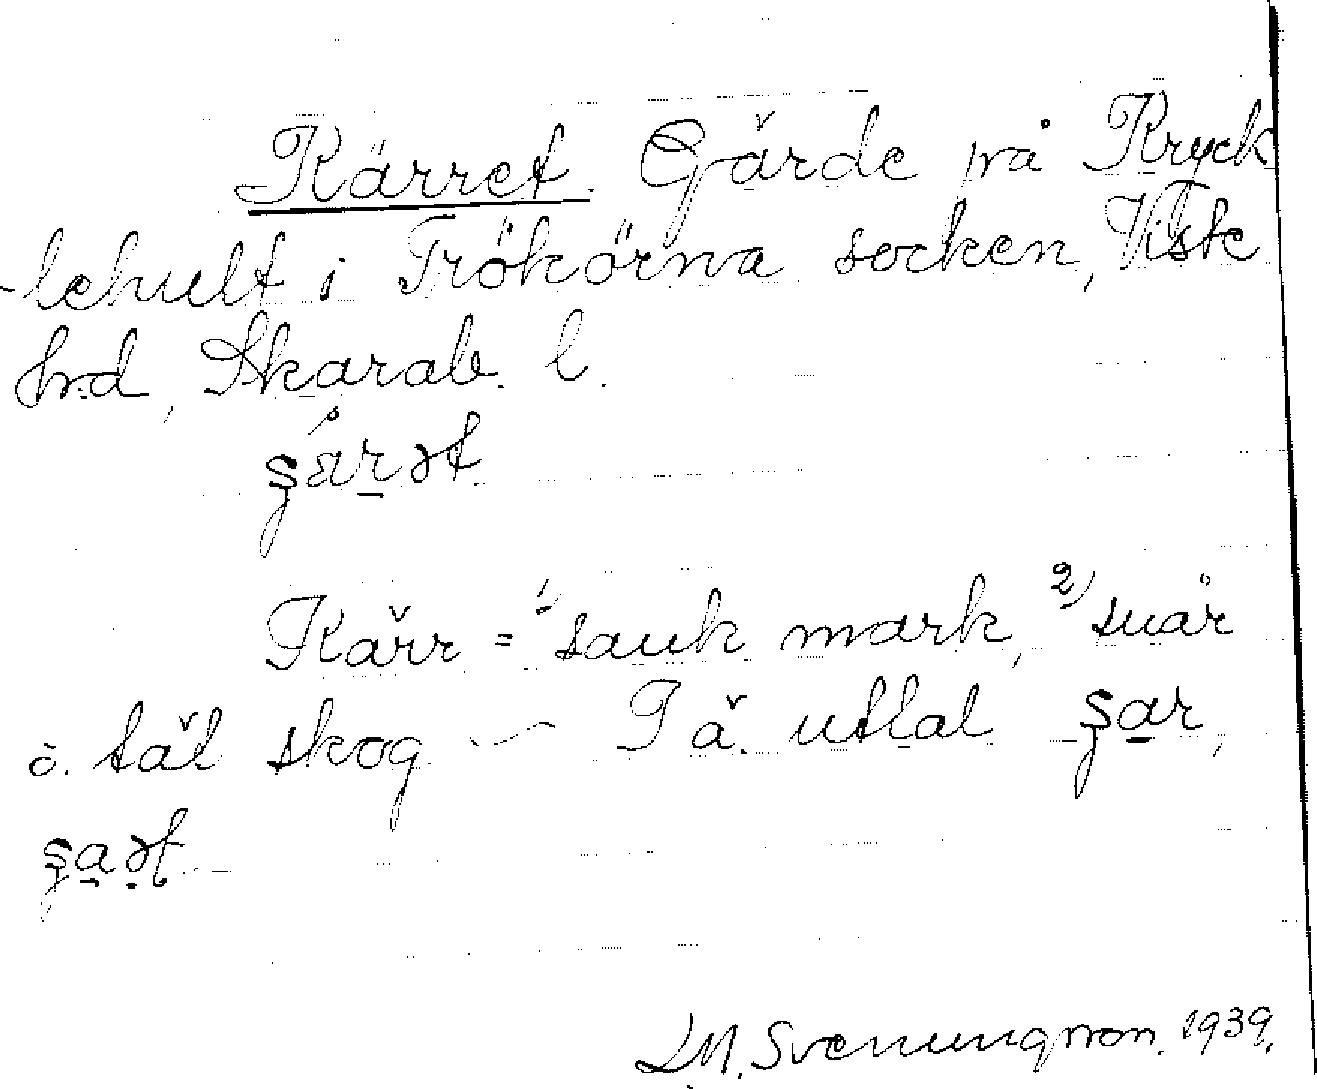 Kärret. Gärde på Kryck
-lehult i Trökörna socken, Viste
hrd, Skarab. l.
Kärr = 1) sank mark, 2) snår
o. tät skog — I ä. uttal
LM. Svenungsson. 1939.